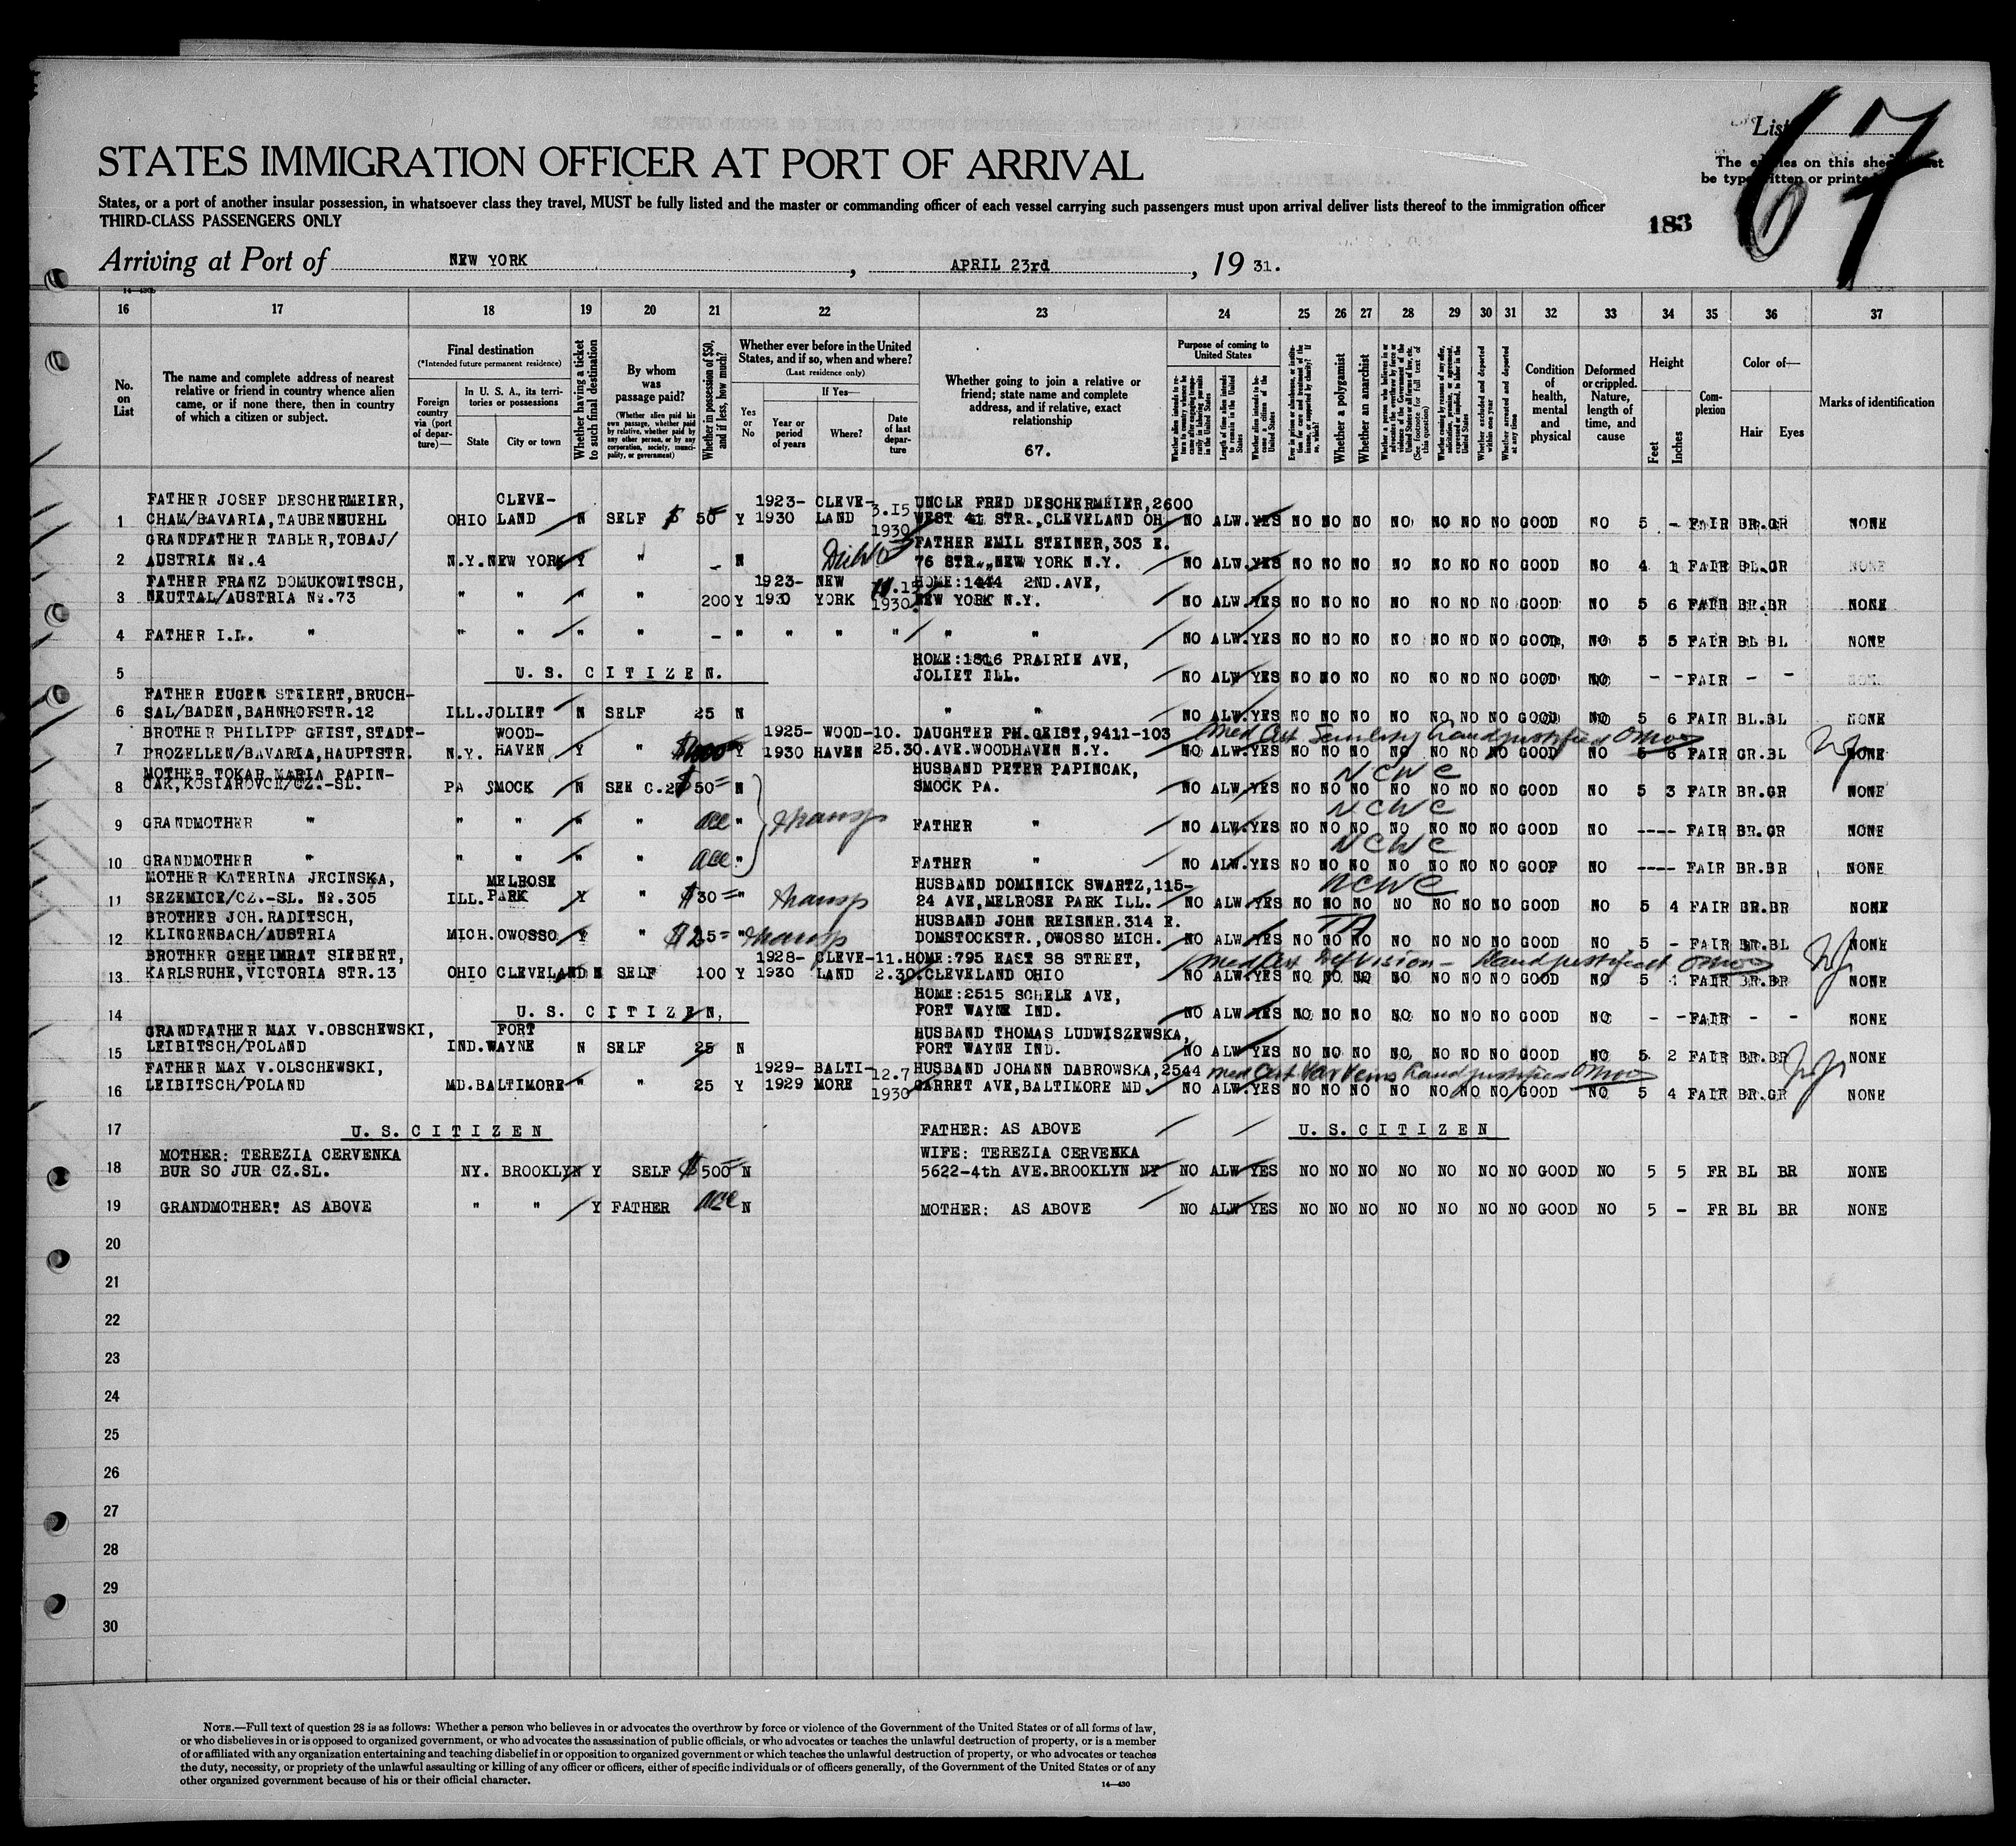 List
67
The entries on this sheet must
be typewritten or printed
STATES IMMIGRATION OFFICER AT PORT OF ARRIVAL
States, or a port of another insular possession, in whatsoever class they travel, MUST be fully listed and the master or commanding officer of each vessel carrying such passengers must upon arrival deliver lists thereof to the immigration officer
THIRD-CLASS PASSENGERS ONLY
183
Arriving at Port of NEW YORK, APRIL 23rd, 19 31.
16 17 18 19 20 21 22 23 24 25 26 27 28 29 30 31 32 33 34 35 36 37
No. on List
The name and complete address of nearest relative or friend in country whence alien came, or if none there, then in country of which a citizen or subject.
Final destination
(*Intended future permanent residence)
Foreign country via (port of departure)—
In U. S. A., its territories or possessions
State
City or town
Whether having a ticket to such final destination
By whom was passage paid?
(Whether alien paid his own passage, whether paid by relative, whether paid by any other person, or by any corporation, society, municipality, or government)
Whether in possession of $50, and if less, how much?
Whether ever before in the United States, and if so, when and where?
(Last residence only)
Yes or No
If Yes—
Year or period of years
Where?
Date of last departure
Whether going to join a relative or friend; state name and complete address, and if relative, exact relationship
67.
Purpose of coming to United States
Length of time alien intends to remain in the United States
Whether alien intends to become a citizen of the United States
Whether a polygamist
Whether an anarchist
Whether excluded and deported within one year
Whether arrested and deported at any time
Condition of health, mental and physical
Deformed or crippled. Nature, length of time, and cause
Height
Feet
Inches
Complexion
Color of—
Hair
Eyes
Marks of identification
1 FATHER JOSEF DESCHERMEIER, CHAM/BAVARIA, TAUBENBUEHL OHIO CLEVE-LAND N SELF $ 50 Y 1923-1930 CLEVE-LAND 3.15 1930 UNCLE FRED DESCHERMEIER, 2600 WEST 41 STR., CLEVELAND OH. NO ALW. YES NO NO NO NO NO NO NO GOOD NO 5 - FAIR BR. GR NONE
2 GRANDFATHER TABLER, TOBAJ/ AUSTRIA No. 4 N.Y. NEW YORK Y " - N FATHER EMIL STEINER, 303 E. 76 STR., NEW YORK N.Y. NO ALW. YES NO NO NO NO NO NO NO GOOD NO 4 1 FAIR BL. GR NONE
3 FATHER FRANZ DOMUKOWITSCH, NEUTTAL/AUSTRIA No. 73 " " " " 200 Y 1923-1930 NEW YORK 1930. HOME: 1444 2ND. AVE, NEW YORK N.Y. NO ALW. YES NO NO NO NO NO NO NO GOOD NO 5 6 FAIR BR. BR NONE
4 FATHER I.L. " " " " " - " " " " " " NO ALW. YES NO NO NO NO NO NO NO GOOD, NO 5 5 FAIR BL BL NONE
5 U. S. CITIZEN. HOME: 1816 PRAIRIE AVE, JOLIET ILL. NO ALW YES NO NO NO NO NO NO NO GOOD NO - - FAIR - - NONE
6 FATHER EUGEN STEIERT, BRUCH-SAL/BADEN, BAHNHOFSTR. 12 ILL. JOLIET N SELF 25 N " " NO ALW. YES NO NO NO NO NO NO NO GOOD NO 5 6 FAIR BL. BL NONE
Med Cert Senility
7 BROTHER PHILIPP GEIST, STADT-PROZELLEN/BAVARIA, HAUPTSTR. N.Y. WOOD-HAVEN Y " Y 1925-1930 WOOD-HAVEN 10. 25.30. DAUGHTER PH. GEIST, 9411-103 AVE. WOODHAVEN N.Y. NO ALW. YES NO NO NO NO NO NO NO GOOD NO 5 6 FAIR GR. BL NONE
8 MOTHER TOKAR MARIA PAPIN-CAK, KOSTAROVCE/CZ.-SL. PA SMOCK N SEE C. 2 $50 N HUSBAND PETER PAPINCAK, SMOCK PA. NCWC NO ALW. YES NO NO NO NO NO NO NO GOOD NO 5 3 FAIR BR. GR NONE
9 GRANDMOTHER " " " " " acc " transp FATHER " NCWC NO ALW. YES NO NO NO NO NO NO NO GOOD NO ---- FAIR BR. GR NONE
10 GRANDMOTHER " " " " " acc " FATHER " NCWC NO ALW. YES NO NO NO NO NO NO NO GOOF NO ---- FAIR BR. BR NONE
11 MOTHER KATERINA JECINSKA, SEZEMICE/CZ.-SL. No. 305 ILL. MELROSE PARK Y " $30 " transp HUSBAND DOMINICK SWARTZ, 115-24 AVE, MELROSE PARK ILL. NCWC NO ALW. YES NO NO NO NO NO NO NO GOOD NO 5 4 FAIR BR. BR NONE
12 BROTHER JOH. RADITSCH, KLINGENBACH/AUSTRIA MICH. OWOSSO Y " " transp HUSBAND JOHN REISNER. 314 E. DOMSTOCKSTR., OWOSSO MICH. TA NO ALW YES NO NO NO NO NO NO NO GOOD NO 5 - FAIR BR. BL NONE
13 BROTHER GEHEIMRAT SIEBERT, KARLSRUHE, VICTORIA STR. 13 OHIO CLEVELAND N SELF 100 Y 1928-1930 CLEVE-LAND 11. 2.30. HOME: 795 EAST 88 STREET, CLEVELAND OHIO NO ALW. YES NO NO NO NO NO NO NO GOOD NO 5 4 FAIR BR. BR NONE
14 U. S. CITIZEN, HOME: 2515 SCHELE AVE, FORT WAYNE IND. NO ALW. YES NO NO NO NO NO NO NO GOOD NO - - FAIR - - NONE
15 GRANDFATHER MAX V. OBSCHEWSKI, LEIBITSCH/POLAND IND. FORT WAYNE N SELF 25 N HUSBAND THOMAS LUDWISZEWSKA, FORT WAYNE IND. NO ALW YES NO NO NO NO NO NO NO GOOD NO 5 2 FAIR BR. BR NONE
Med Cert Var Veins
16 FATHER MAX V. OLSCHEWSKI, LEIBITSCH/POLAND MD. BALTIMORE " " 25 Y 1929-1929 BALTI-MORE 12.7 1930 HUSBAND JOHANN DABROWSKA, 2544 GARRET AVE, BALTIMORE MD. NO ALW. YES NO NO NO NO NO NO NO GOOD NO 5 4 FAIR BR. GR NONE
17 U. S. CITIZEN FATHER: AS ABOVE U. S. CITIZEN
18 MOTHER: TEREZIA CERVENKA BUR SO JUR CZ.SL. NY. BROOKLYN Y SELF $500 N WIFE: TEREZIA CERVENKA 5622-4th AVE. BROOKLYN NY NO ALW YES NO NO NO NO NO NO NO GOOD NO 5 5 FR BL BR NONE
19 GRANDMOTHER: AS ABOVE " " Y FATHER acc N MOTHER: AS ABOVE NO ALW YES NO NO NO NO NO NO NO GOOD NO 5 - FR BL BR NONE
20
21
22
23
24
25
26
27
28
29
30
NOTE.—Full text of question 28 is as follows: Whether a person who believes in or advocates the overthrow by force or violence of the Government of the United States or of all forms of law,
or who disbelieves in or is opposed to organized government, or who advocates the assassination of public officials, or who advocates or teaches the unlawful destruction of property, or is a member
of or affiliated with any organization entertaining and teaching disbelief in or opposition to organized government or which teaches the unlawful destruction of property, or who advocates or teaches
the duty, necessity, or propriety of the unlawful assaulting or killing of any officer or officers, either of specific individuals or of officers generally, of the Government of the United States or of any
other organized government because of his or their official character.
14—430